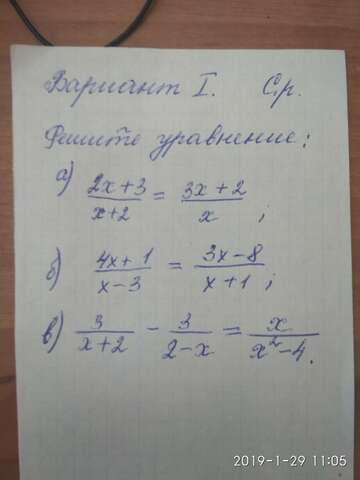 Вариант I. Ср.
Решите уравнение:
а) (2x+3)/(x+2) = (3x+2)/x ;
б) (4x+1)/(x-3) = (3x-8)/(x+1) ;
в) 3/(x+2) - 3/(2-x) = x/(x²-4) .
2019-1-29 11:05